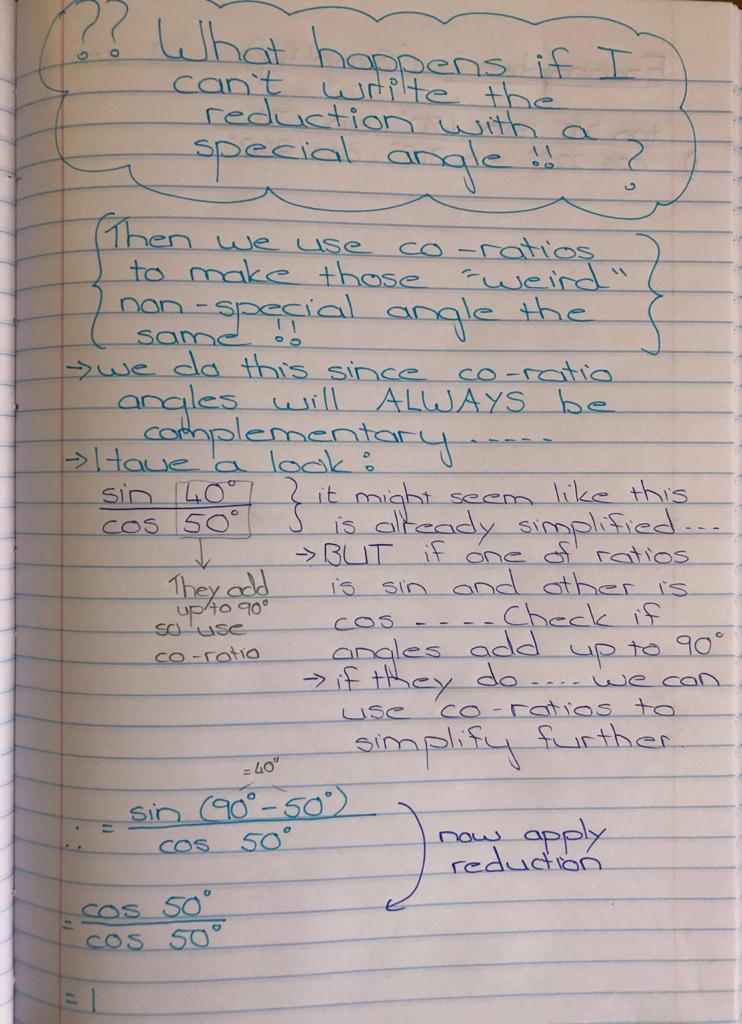 ?? What happens if I
can't write the
reduction with a
special angle !! ?
Then we use co-ratios
to make those "weird"
non-special angle the
same !!
→ we do this since co-ratio
angles will ALWAYS be
complementary .....
→ Have a look :
sin 40°
cos 50°
They add
up to 90°
so use
co-ratio
it might seem like this
is already simplified...
→ BUT if one of ratios
is sin and other is
cos .... Check if
angles add up to 90°
→ if they do .... we can
use co-ratios to
simplify further.
=40°
∴ = sin (90° - 50°)
cos 50°
now apply
reduction
= cos 50°
cos 50°
= 1